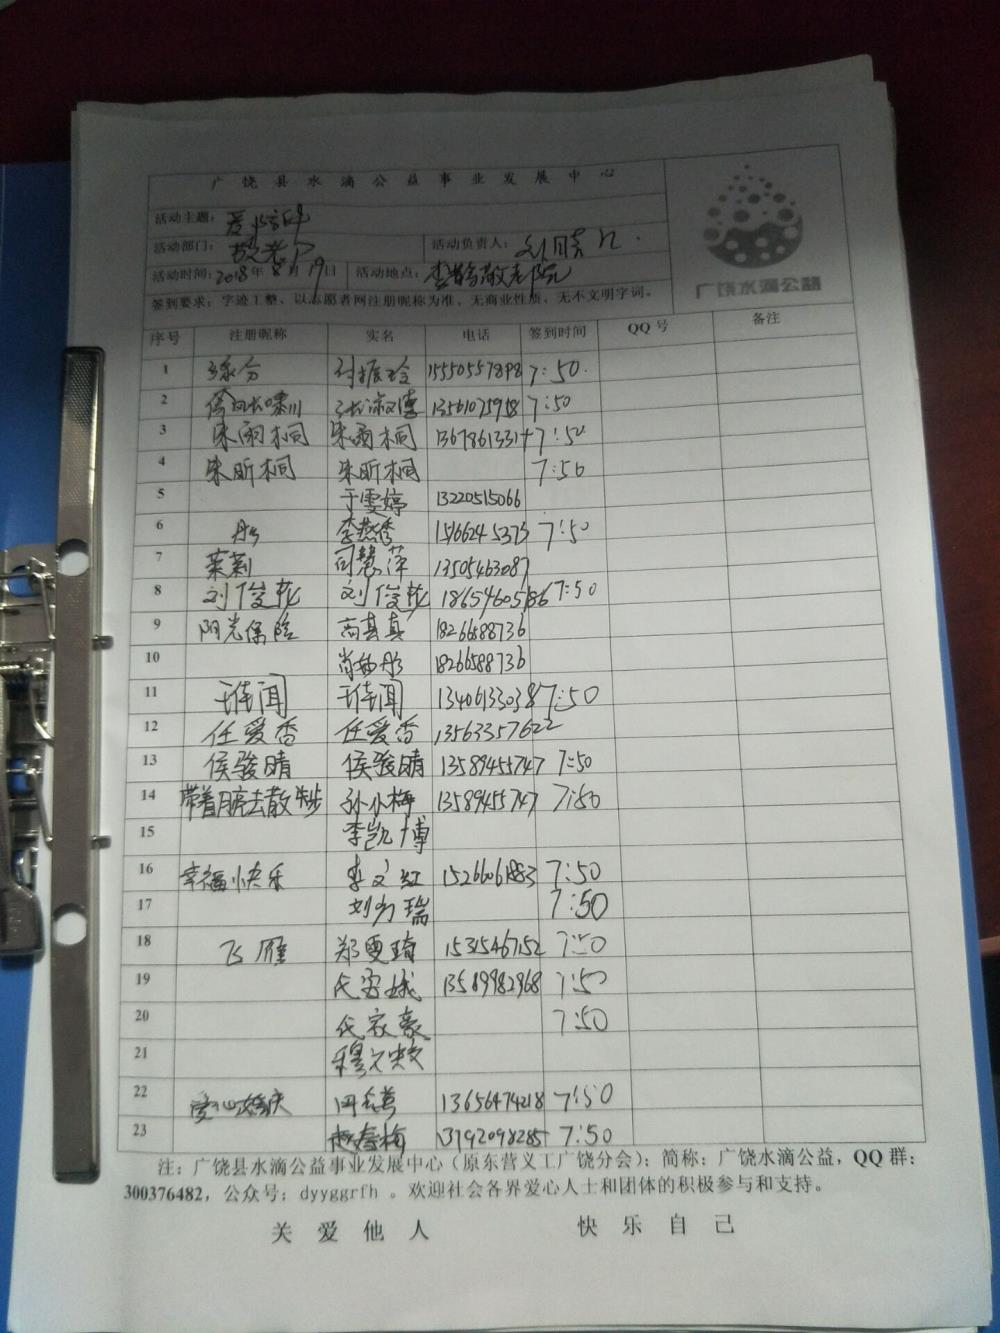 广饶县水滴公益事业发展中心
活动主题：
活动部门： 活动负责人：
活动时间：2018年8月19日 活动地点：敬老院
签到要求：字迹工整、以志愿者网注册昵称为准、无商业性质、无不文明字词。
广饶水滴公益
序号 注册昵称 实名 电话 签到时间 QQ号 备注
1 缘分 付振玲 15550557898 7:50
2 13561075958 7:50
3 朱雨桐 朱雨桐 13678613314 7:50
4 朱昕桐 朱昕桐 7:50
5 于雯婷 13220515066
6 李燕秀 15166245373 7:50
7 茉莉 司慧萍 13505463087
8 刘俊彩 刘俊彩 18654605186 7:50
9 阳光保险 高其真 18266588736
10 18266588736
11 王佳闻 王佳闻 13406133038 7:50
12 任爱香 任爱香 13563357622
13 侯骏晴 侯骏晴 13589455747 7:50
14 带着月亮去散步 孙小梅 13589455747 7:50
15 李凯博
16 幸福快乐 李文红 15266061883 7:50
17 瑞 7:50
18 飞雁 郑雯琦 15315467152 7:50
19 13589982968 7:50
20 代家豪 7:50
21
22 爱心婚庆 13656474218 7:50
23 赵春梅 13792098285 7:50
注：广饶县水滴公益事业发展中心（原东营义工广饶分会）；简称：广饶水滴公益，QQ群：
300376482，公众号：dyyggrfh 。欢迎社会各界爱心人士和团体的积极参与和支持。
关爱他人 快乐自己